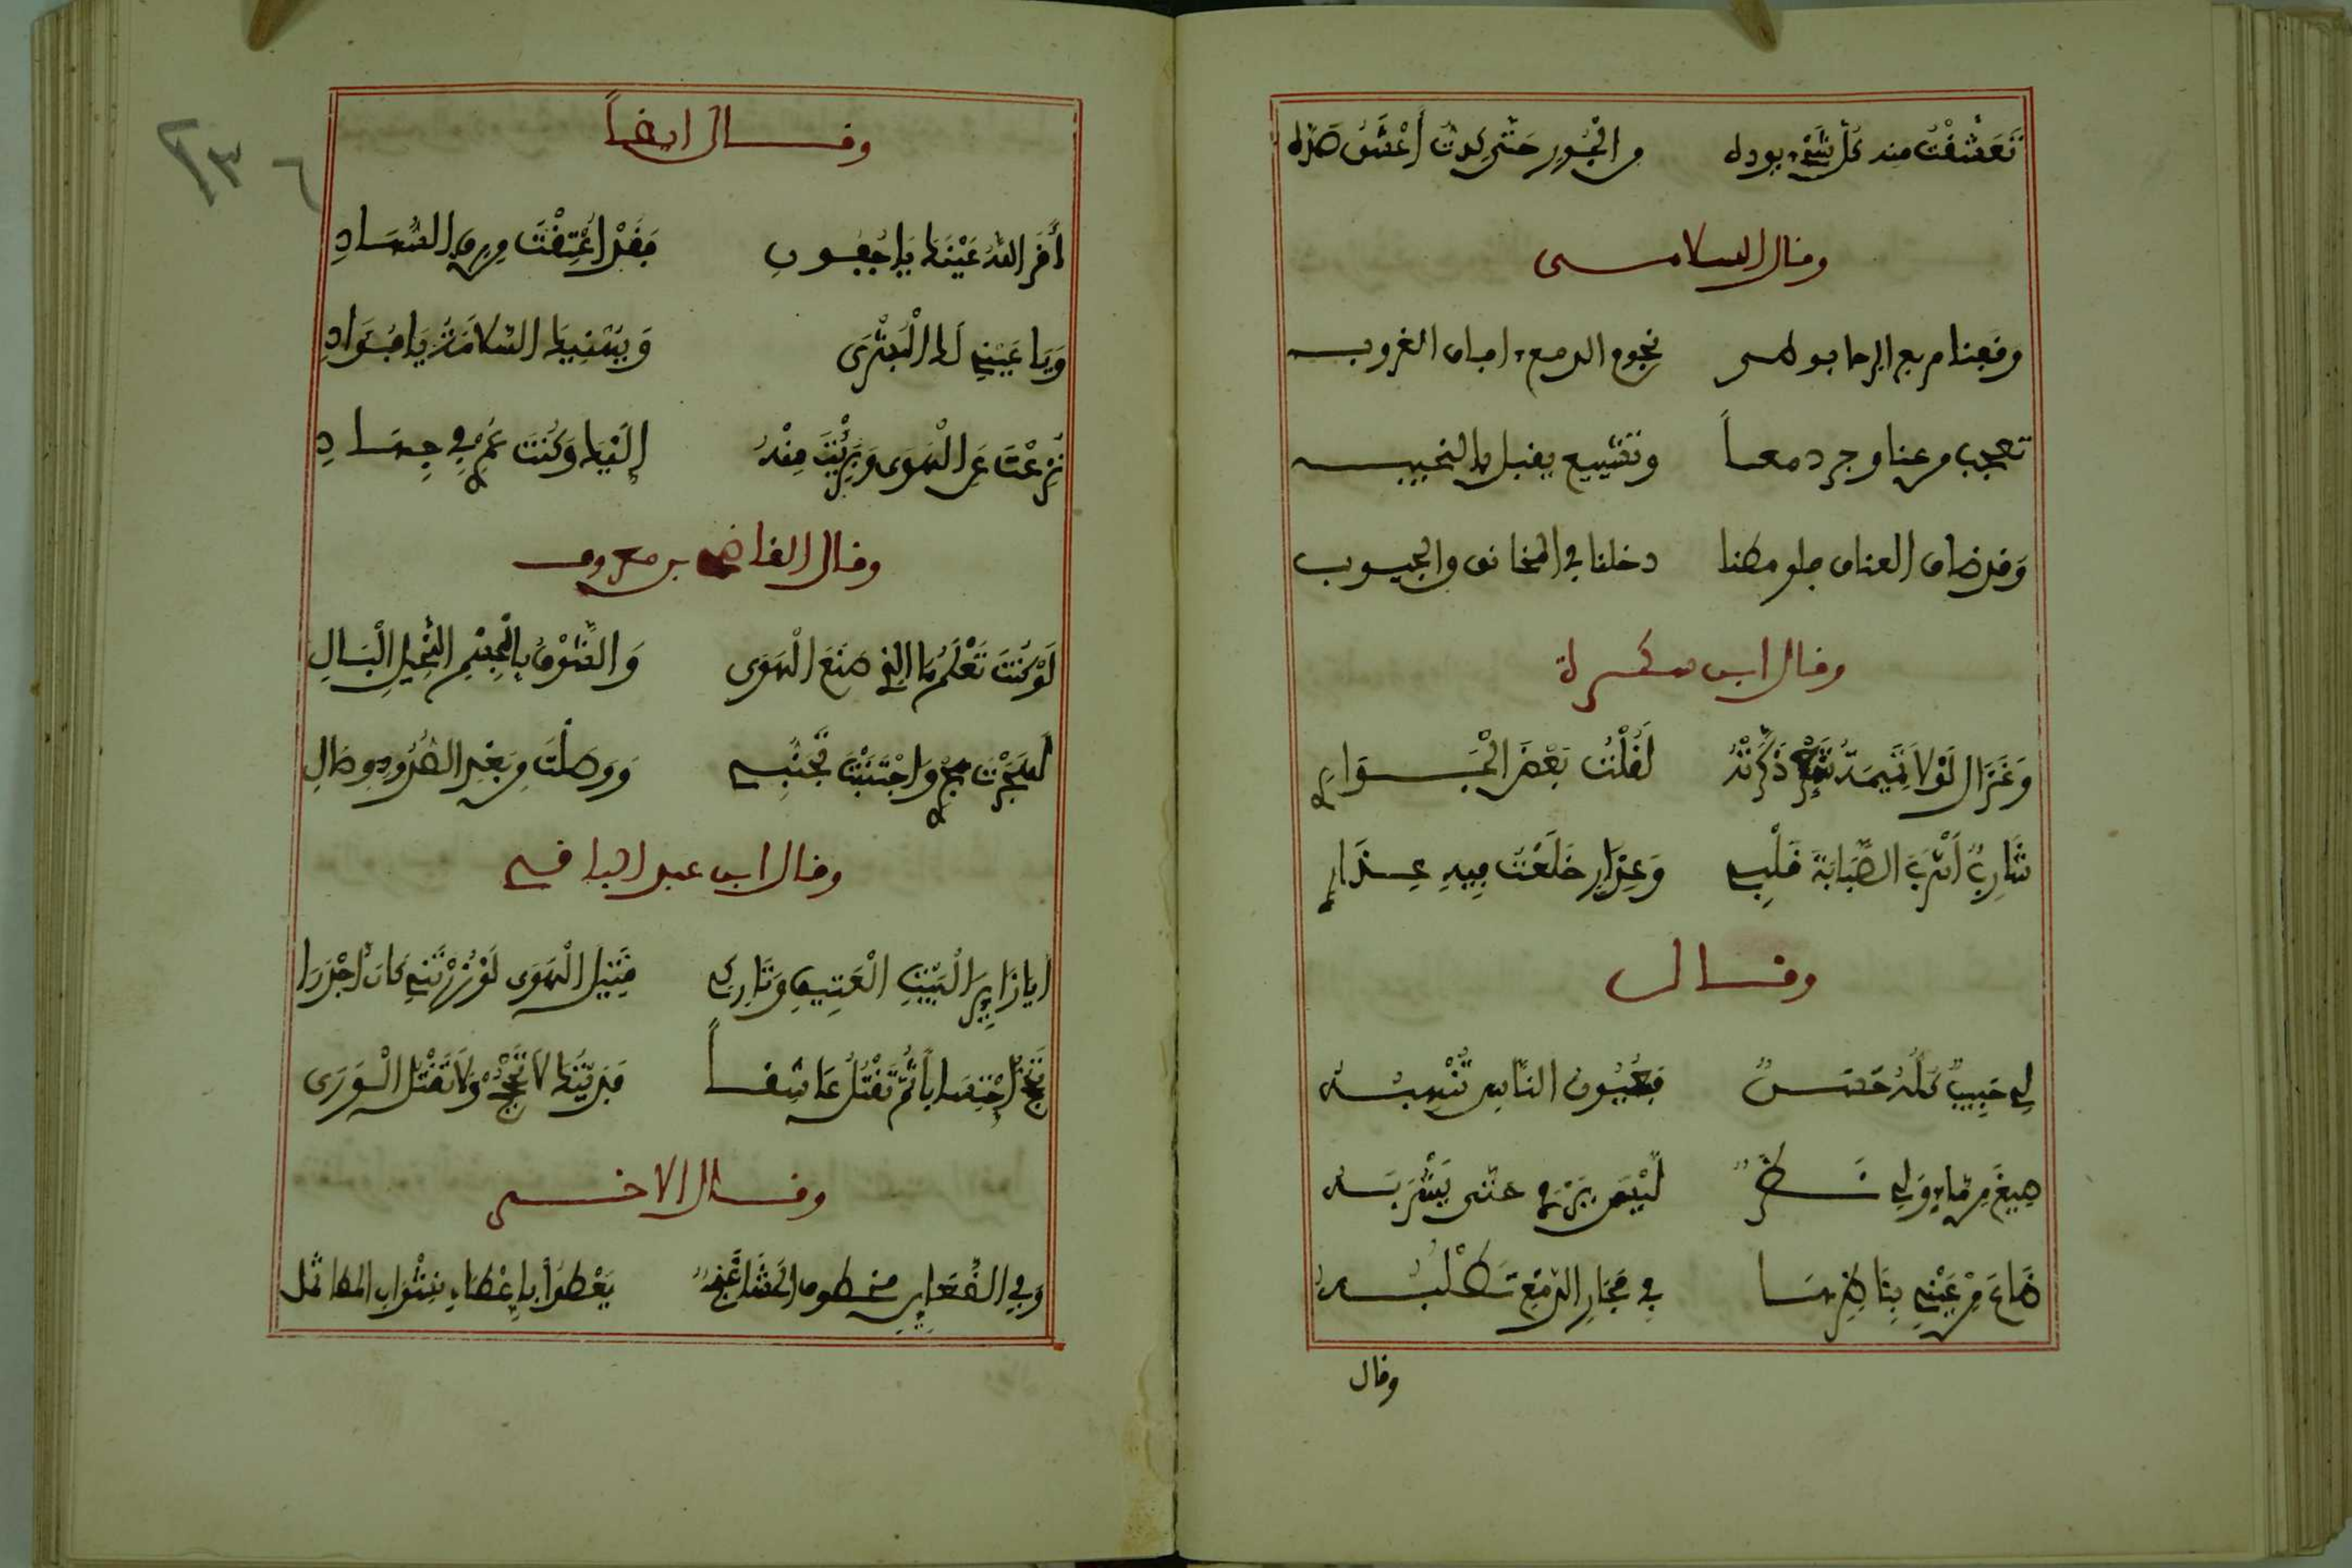 تَعَشَّقْتُ منه كُلَّ شَيْءٍ يوده من الْجَوْرِ حَتَّى كِدتُ أَعْشَقُ صَدَّه
وقال السلامى
وقفنا نجوم الدمع الغروب
تعجب من عناق جر دمعا وتشييع يقبل بالنحيب
وَقد ضاق العناق فلو فطنا دخلنا في المخانق والجيوب
وقال ابن سكرة
وَغَزَالٍ لَوْلاَ نَمِيمَةُ ذَكَّرَتْهُ لَقُلْتُ بَعْضُ الْجَوَارِي
شَارِبٌ أَشْرَبَ الصَّبَابَةَ قَلْبِي وَعِذَارٍ خَلَعْتُ فِيهِ عِذَارِي
وقال
لِي حَبِيبٌ كُلُّهُ حَسَنٌ فَعُيُونُ النَّاسِ تَنْهَبُهُ
صِيغَ مِن مَّاءٍ وَلِي نَظَرٌ لَيْسَ يَرْوَى حتى يَشْرَبَهُ
ضَاعَ مِنْ عَيْنِي في مَجَارِي الدَّمْعِ تَطْلُبُهُ
وقال
وقال ايضاً
أَقَرَّ اللهُ عَيْنَهَا يَا جُفُونِي فَقَدْ أُعْتِقْتِ مِن رِقِّ السُّهَادِ
وَيَا عَيْنِي لَهَا الْبُشْرَى وَيَهْنِيهَا السَّلاَمَةُ يَا فُؤَادِ
نَزَعْتَ عَنِ الْهَوَى وَبَرِئْتَ مِنْهُ إِلَيْهَا وَكُنْتَ عَنِّي فِي جِهَادِ
وقال القاضي بن معروف
لَوْ كُنْتَ تَعْلَمُ مَا الَّذِي صَنَعَ الْهَوَى وَالشَّوْقُ بِالْجِسْمِ النَّحِيلِ الْبَالِ
لَهَجَرْتَ هَجْرِي وَاجْتَنَبْتَ تَجَنُّبِي وَوَصَلْتَ مِن بَعْدِ الصُّدُودِ وِصَالِ
وقال ابن عبد الباقي
أيا زَائِرَ الْبَيْتِ الْعَتِيقِ وَتَارِكِي قَتِيلَ الْهَوَى لَوْ زُرْتَنِي كَانَ أَجْدَرَا
تَحُجُّ احْتِسَاباً ثُمَّ تَقْتُلُ عَاشِقاً فَدَيْتُكَ لاَ تَحْجُجْ وَلاَ تَقْتُلِ الْوَرَى
وقال الاخر